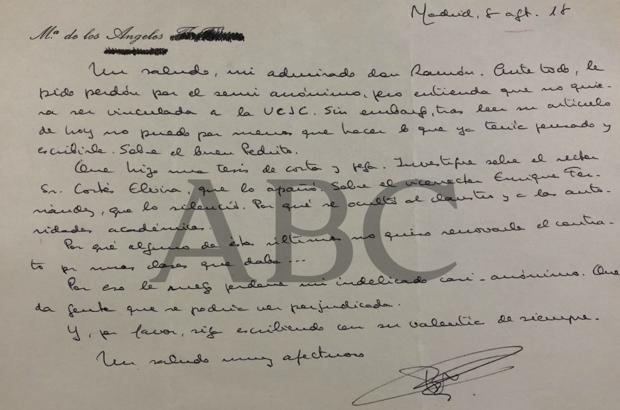 Madrid, 8 agt. 18
Mª de los Angeles
Un saludo, mi admirado don Ramón. Ante todo, le
pido perdón por el semi anónimo, pero entienda que no quie-
ra ser vinculada a la UCJC. Sin embargo, tras leer su artículo
de hoy no puedo por menos que hacer lo que ya tenía pensado y
escribirle. Sobre el buen Pedrito.
Que hizo una tesis de corta y pega. Investigue sobre el rector
Sr. Cortés Elvira, que lo apañó. Sobre el vicerrector Enrique Fer-
nández, que lo silenció. Por qué se ocultó al claustro y a las auto-
ridades académicas.
Por qué alguno de estos últimos no quiso renovarle el contra-
to por unas clases que daba...
Por eso le ruego perdone mi indelicado casi-anónimo. Que-
da gente que se podría ver perjudicada.
Y, por favor, siga escribiendo con su valentía de siempre.
Un saludo muy afectuoso
ABC